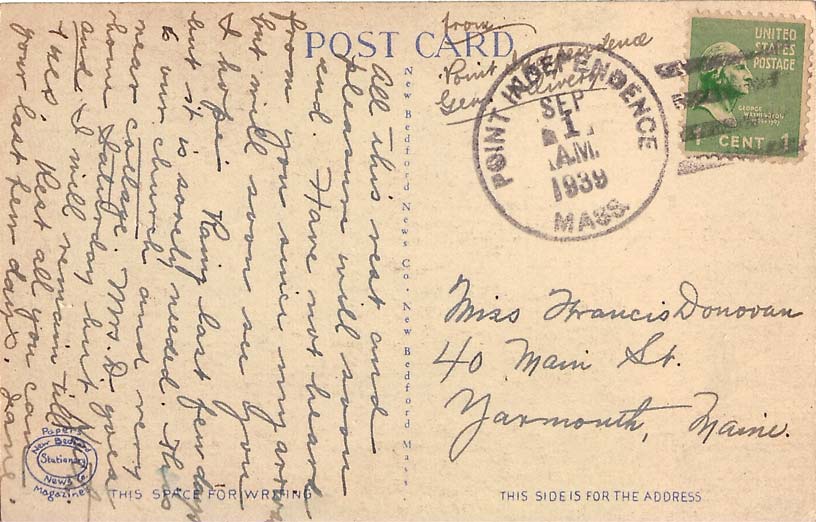 POST CARD
from
Point Independence
Gen. Delivery
POINT INDEPENDENCE
SEP
1
A.M.
1939
MASS.
UNITED
STATES
POSTAGE
GEORGE
WASHINGTON
1 CENT 1
All this rest and
pleasure will soon
end. Have not heard
from you since my arrival
but will soon see you
I hope. Rainy last few days
but it is sorely needed. This
is our church and very
near cottage. Mrs. D. goes
home Saturday but
and I will remain till
Tues. Rest all you can
your last few days. Jane.
New Bedford News Co. New Bedford Mass.
Miss Francis Donovan
40 Main St.
Yarmouth, Maine.
Papers
New Bedford
Stationery
News Co.
Magazines
THIS SPACE FOR WRITING
THIS SIDE IS FOR THE ADDRESS